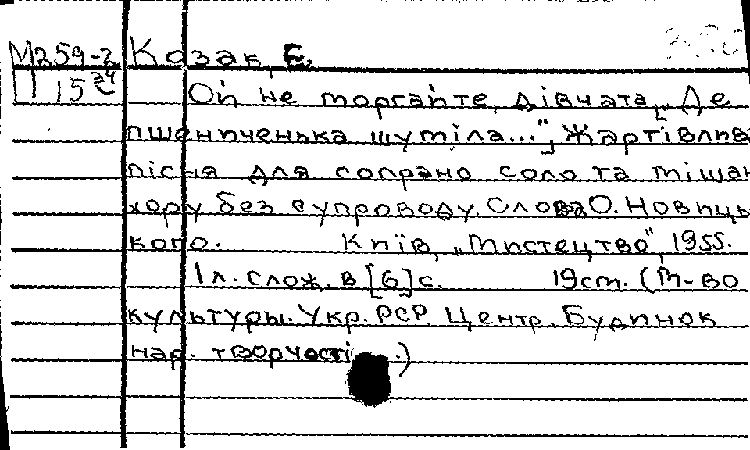 М259-2 Козак, Є.
П 15
Ой не моргайте, дівчата, „Де
пшениченька шуміла...", Жартівлива
пісня для сопрано соло та мішан.
хору без супроводу. Слова О. Новиць-
кого. Київ, „Мистецтво", 1955.
1 л. слож. в [6] с. 19 cm. (М-во
культуры. Укр. РСР. Центр. Будинок
нар. творчості .)